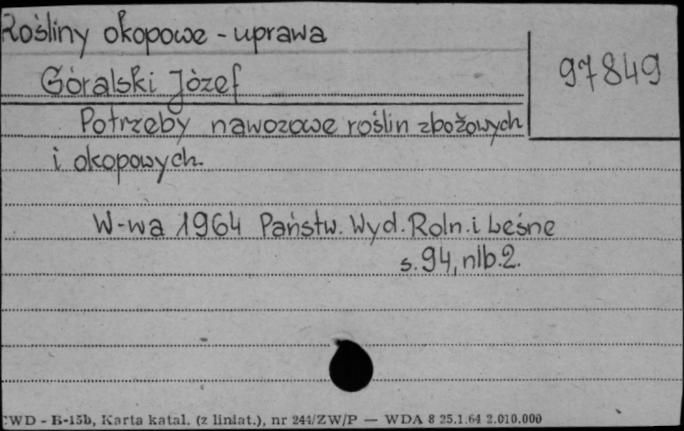 Rośliny okopowe - uprawa
97849
Góralski Józef
Potrzeby nawozowe roślin zbożowych
i okopowych.
W-wa 1964 Państw. Wyd. Roln. i Leśne
s. 94, nlb. 2.
CWD - B-15b, Karta katal. (z liniat.), nr 244/ZW/P — WDA 8 25.1.64 2.010.000